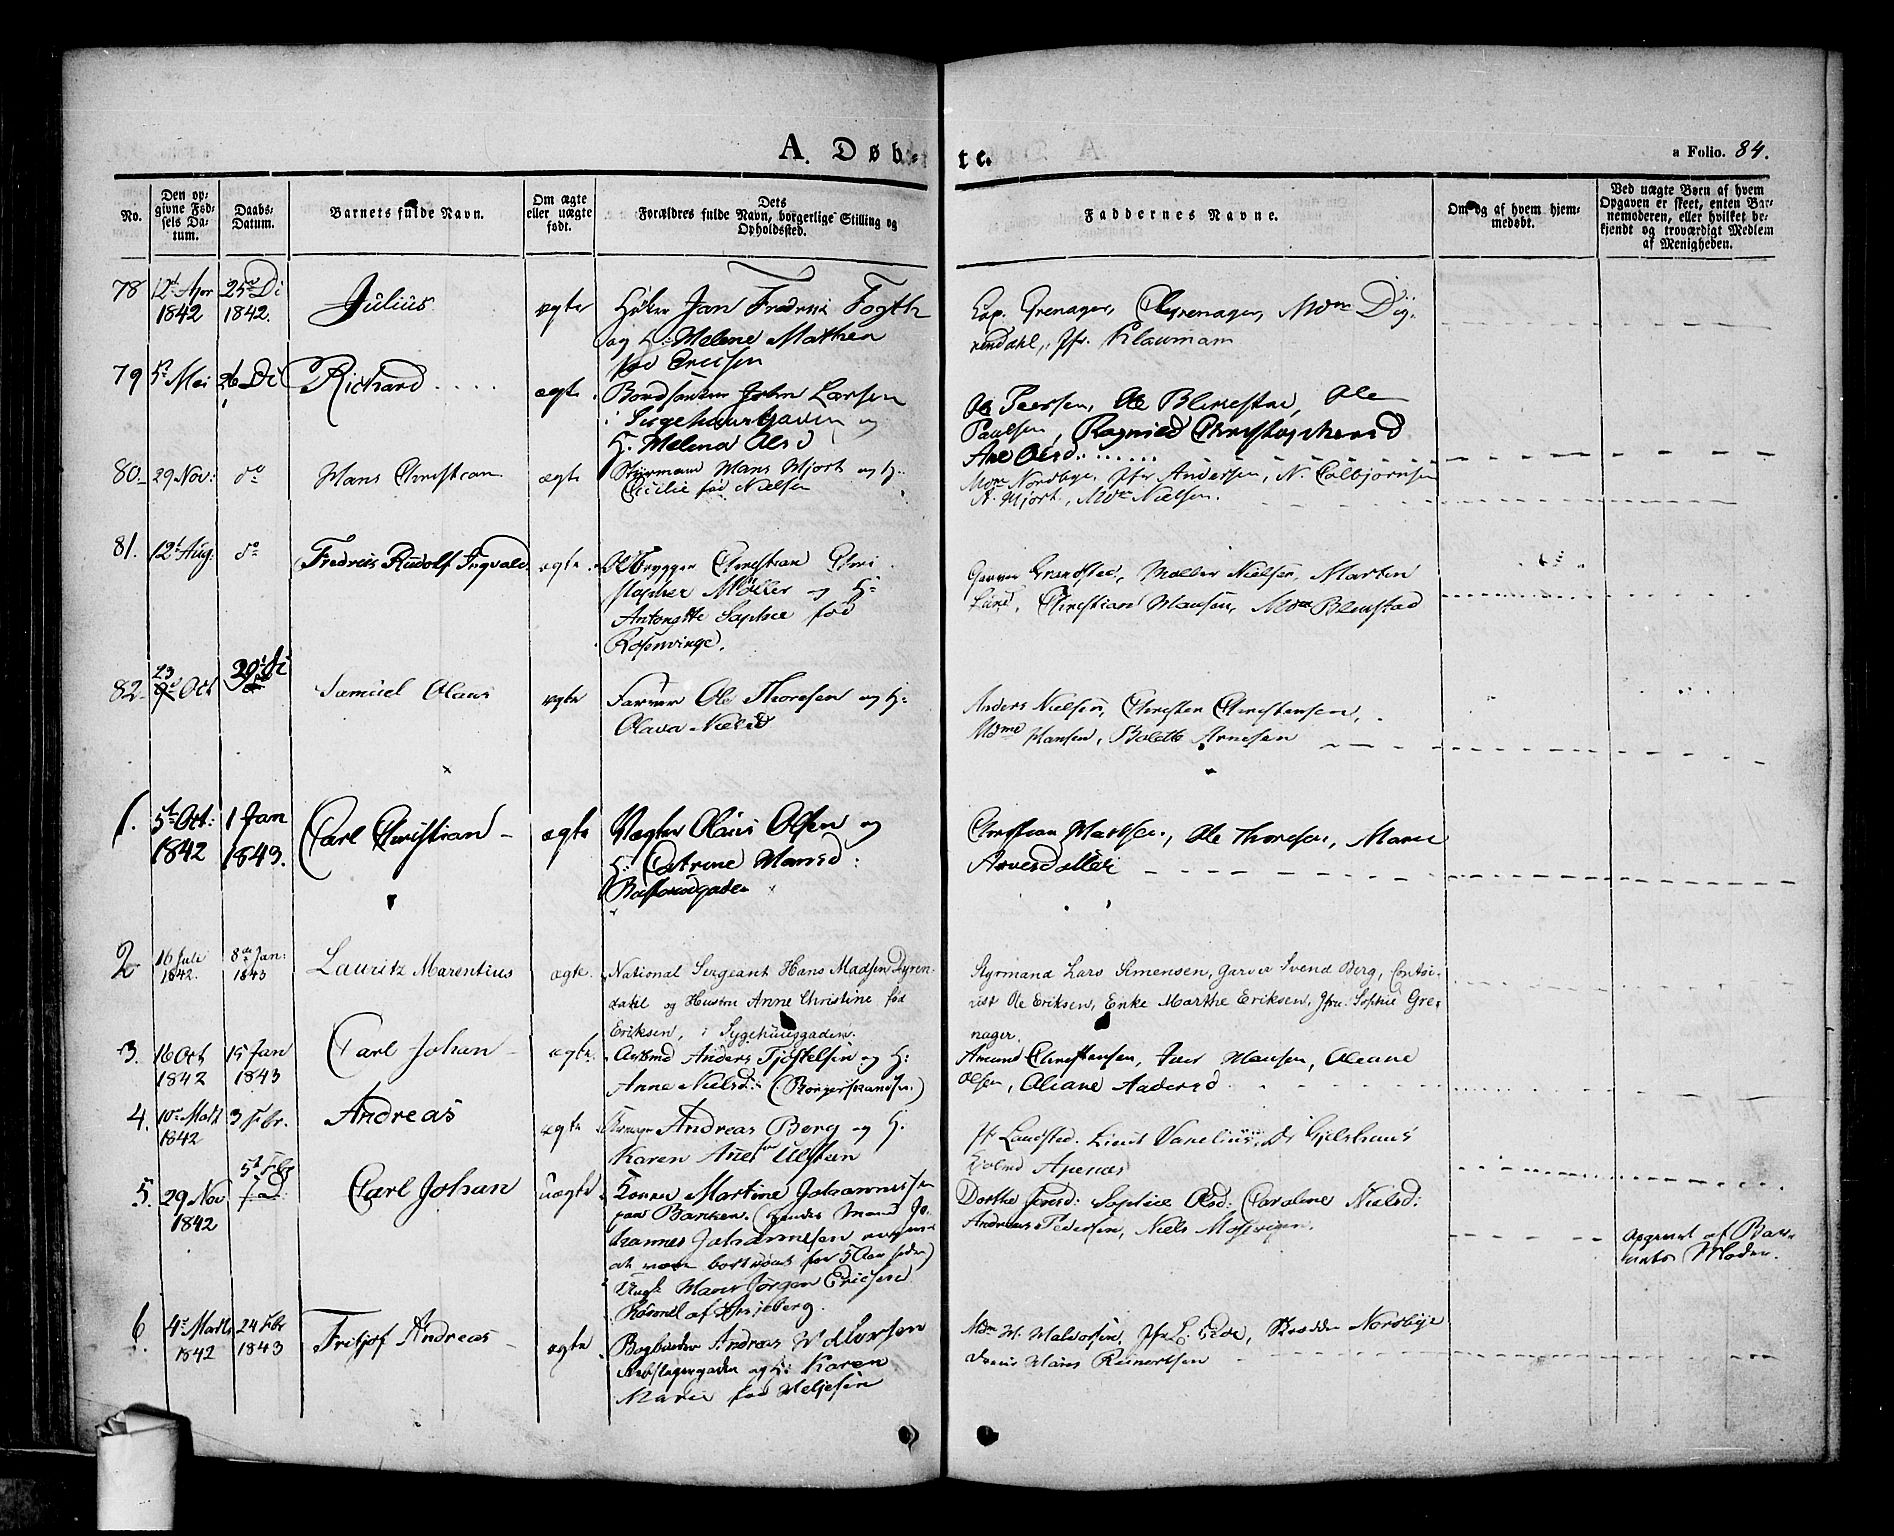 A. Døb-
te.
a Folio. 84.
No.
Den op-
givne Fød-
sels Da-
tum.
Daabs-
Datum.
Barnets fulde Navn.
Om ægte
eller uægte
født.
Dets
Forældres fulde Navn, borgerlige Stilling og
Opholdssted.
Faddernes Navne.
Om og af hvem hjem-
medøbt.
Ved uægte Børn af hvem
Opgaven er skeet, enten Bar-
nemoderen, eller hvilket be-
kjendt og troværdigt Medlem
af Menigheden.
78 12t Apr 25d Di Julius ægte Høker Jan Fredrik Fogth
1842 1842. og H: Helene Mathea
fød Ericsen
Cap. Grenager, C Grenager, Mdm Dy-
rendahl, Jfr. Klaumann
79 5t Mai 26 Di Richard ægte Bondsønnen John Larsen
i Sygehuusgaden og
H. Helena Olsd
Ole Peersen, Ole
Paulsen, Ragnild Christophersd
Ane Olsd.
80 29 Nov: do Hans Christian ægte Styrmand Hans Hjort og H:
Cecilie fød Nielsen
Mdm Nordbye, Jfr Andersen, N. Colbjørnsen
A. Hjort, Mdm Nielsen.
81. 12t Aug. do Fredrik Rudolf Ingvald ægte Christian Chri
stopher Møller og H:
Antonette Sophie fød
Rosenvinge.
Garver Grandsted, Møller Nielsen, Martin
Lund, Christian Hansen, Mdm Blenstad
82. 23 Oct 30t Di Samuel Olaus ægte Farver Ole Thoresen og H:
Olava Nielsd
Anders Nielsen, Christen Christensen,
Mdme Hansen, Bolette Arnesen
1. 5t Oct: 1 Jan Carl Christian ægte Vægter Olaus Olsen og
1842 1843. H: Catrine Hansd:
Christian Mathsen, Ole Thoresen, Maren
2 16 Juli 8de Jan: Lauritz Marentius ægte. National Sergeant Hans Madsen Dyren-
1842. 1843 dahl og Hustru Anne Christine fød
Eriksen, i Sygehuusgaden.
Styrmand Lars Simensen, Garver Svend Berg, Contoi-
rist Ole Eriksen, Enke Marthe Eriksen, Jfru: Sophie Gre-
nager.
3. 16 Oct 15 Jan Carl Johan ægte. Arbmd Anders Tjostelsen og H:
1842 1843 Anne Nielsd: (Borgerstrandsen)
Amund Christensen, Iver Hansen, Oleane
Olsen, Oleane Andersd
4. 10t Malt 3 Febr. Andreas ægte Andreas Berg og H.
1842 Karen Ulsteen
Jfr Landsted. Lieut Vanelius,
Apenæs
5. 29 Nov 5t Febr Carl Johan uægte Konen Martine Johannessen
1842 paa Banken. (hendes Mand Jo-
hannes Johannesen
at være bortrømt for 5 Aar siden)
Ungk. Hans Jørgen Ericsen
Dorthe Iversd: Sophie Olsd: Caroline Nielsd:
Andreas Pedersen, Niels Mosvigen.
Opgivet af Bar-
nets Moder.
6. 4t Marts 24 Febr Fritjof Andreas ægte Bogbinder Andreas
1842 1843 Rebslagergaden og H: Karen
Marie fød Heljesen
Mdm H. Halvorsen, Nordbye
Hans Reinertsen